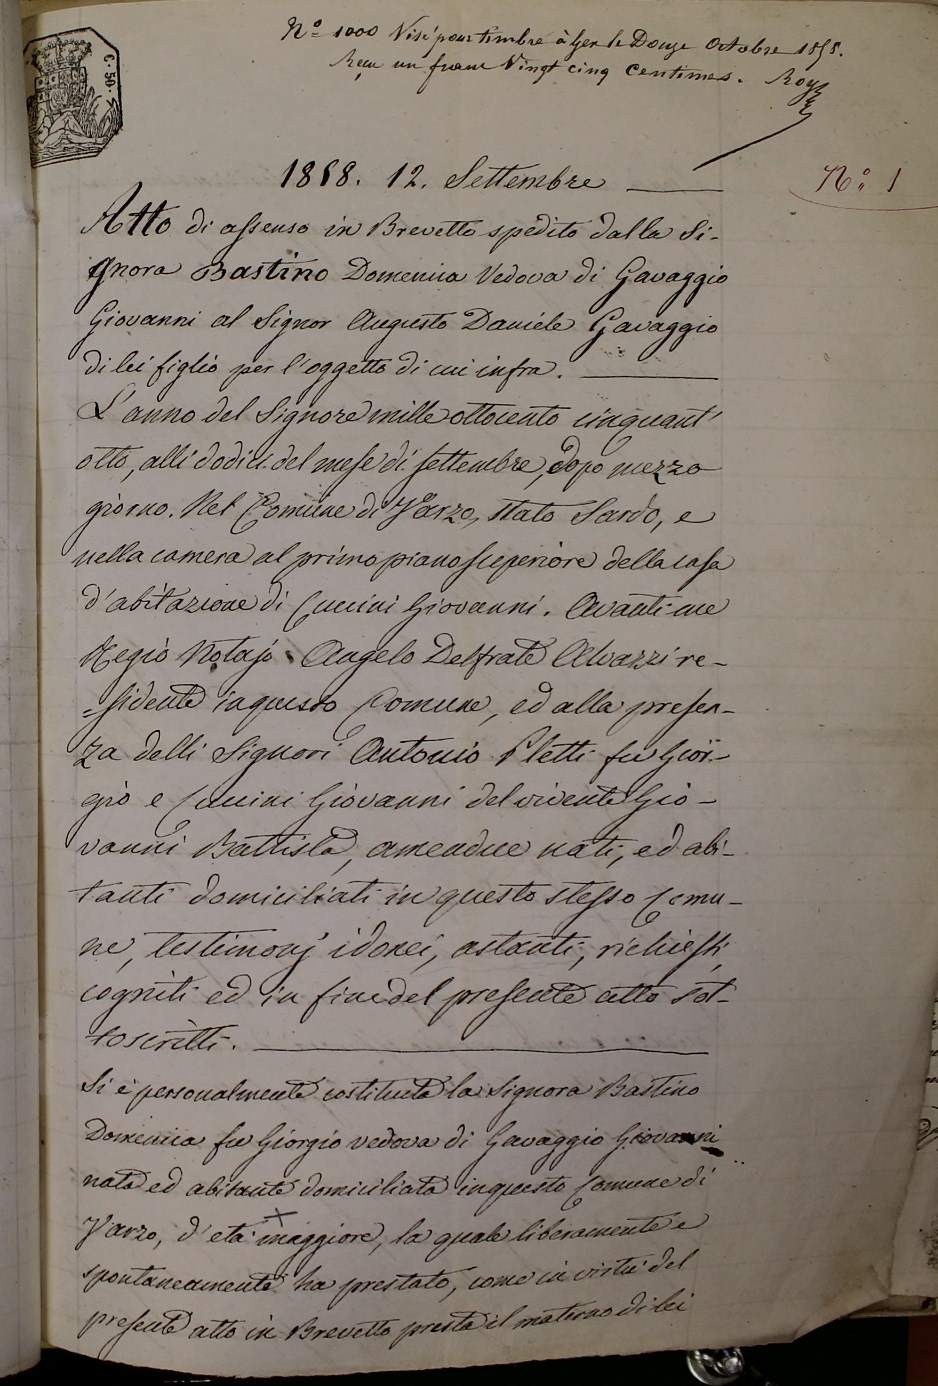 Nº 1000 Visé pour timbre à Gex le Douze Octobre 1858.
Reçu un franc Vingt cinq centimes. Roy
C. 50.
1858. 12. Settembre
Nº 1
Atto di assenso in Brevetto spedito dalla Si-
gnora Bastino Domenica Vedova di Gavaggio
Giovanni al Signor Augusto Daniele Gavaggio
di lei figlio per l'oggetto di cui infra.
L'anno del Signore mille ottocento cinquant'
otto, alli dodici del mese di settembre, dopo mezzo
giorno. Nel Comune di Varzo, stato Sardo, e
nella camera al primo piano superiore della casa
d'abitazione di Cuccini Giovanni. Avanti me
Regio Notajo Angelo Delfrate Alvazzi re-
=sidente in questo Comune, ed alla presen-
za delli Signori Antonio Pletti fu Gior-
gio e Cuccini Giovanni del vivente Gio-
vanni Battista, amendue nati, ed abi-
tanti domiciliati in questo stesso Comu-
ne, testimonj idonei, astanti, richiesti,
cogniti ed in fine del presente atto sot-
toscritti.
Si è personalmente costituita la Signora Bastino
Domenica fu Giorgio vedova di Gavaggio Giovanni
nata ed abitante domiciliata in questo Comune di
Varzo, d'età maggiore, la quale liberamente e
spontaneamente ha prestato, come in virtù del
presente atto in Brevetto presta il materno di lei